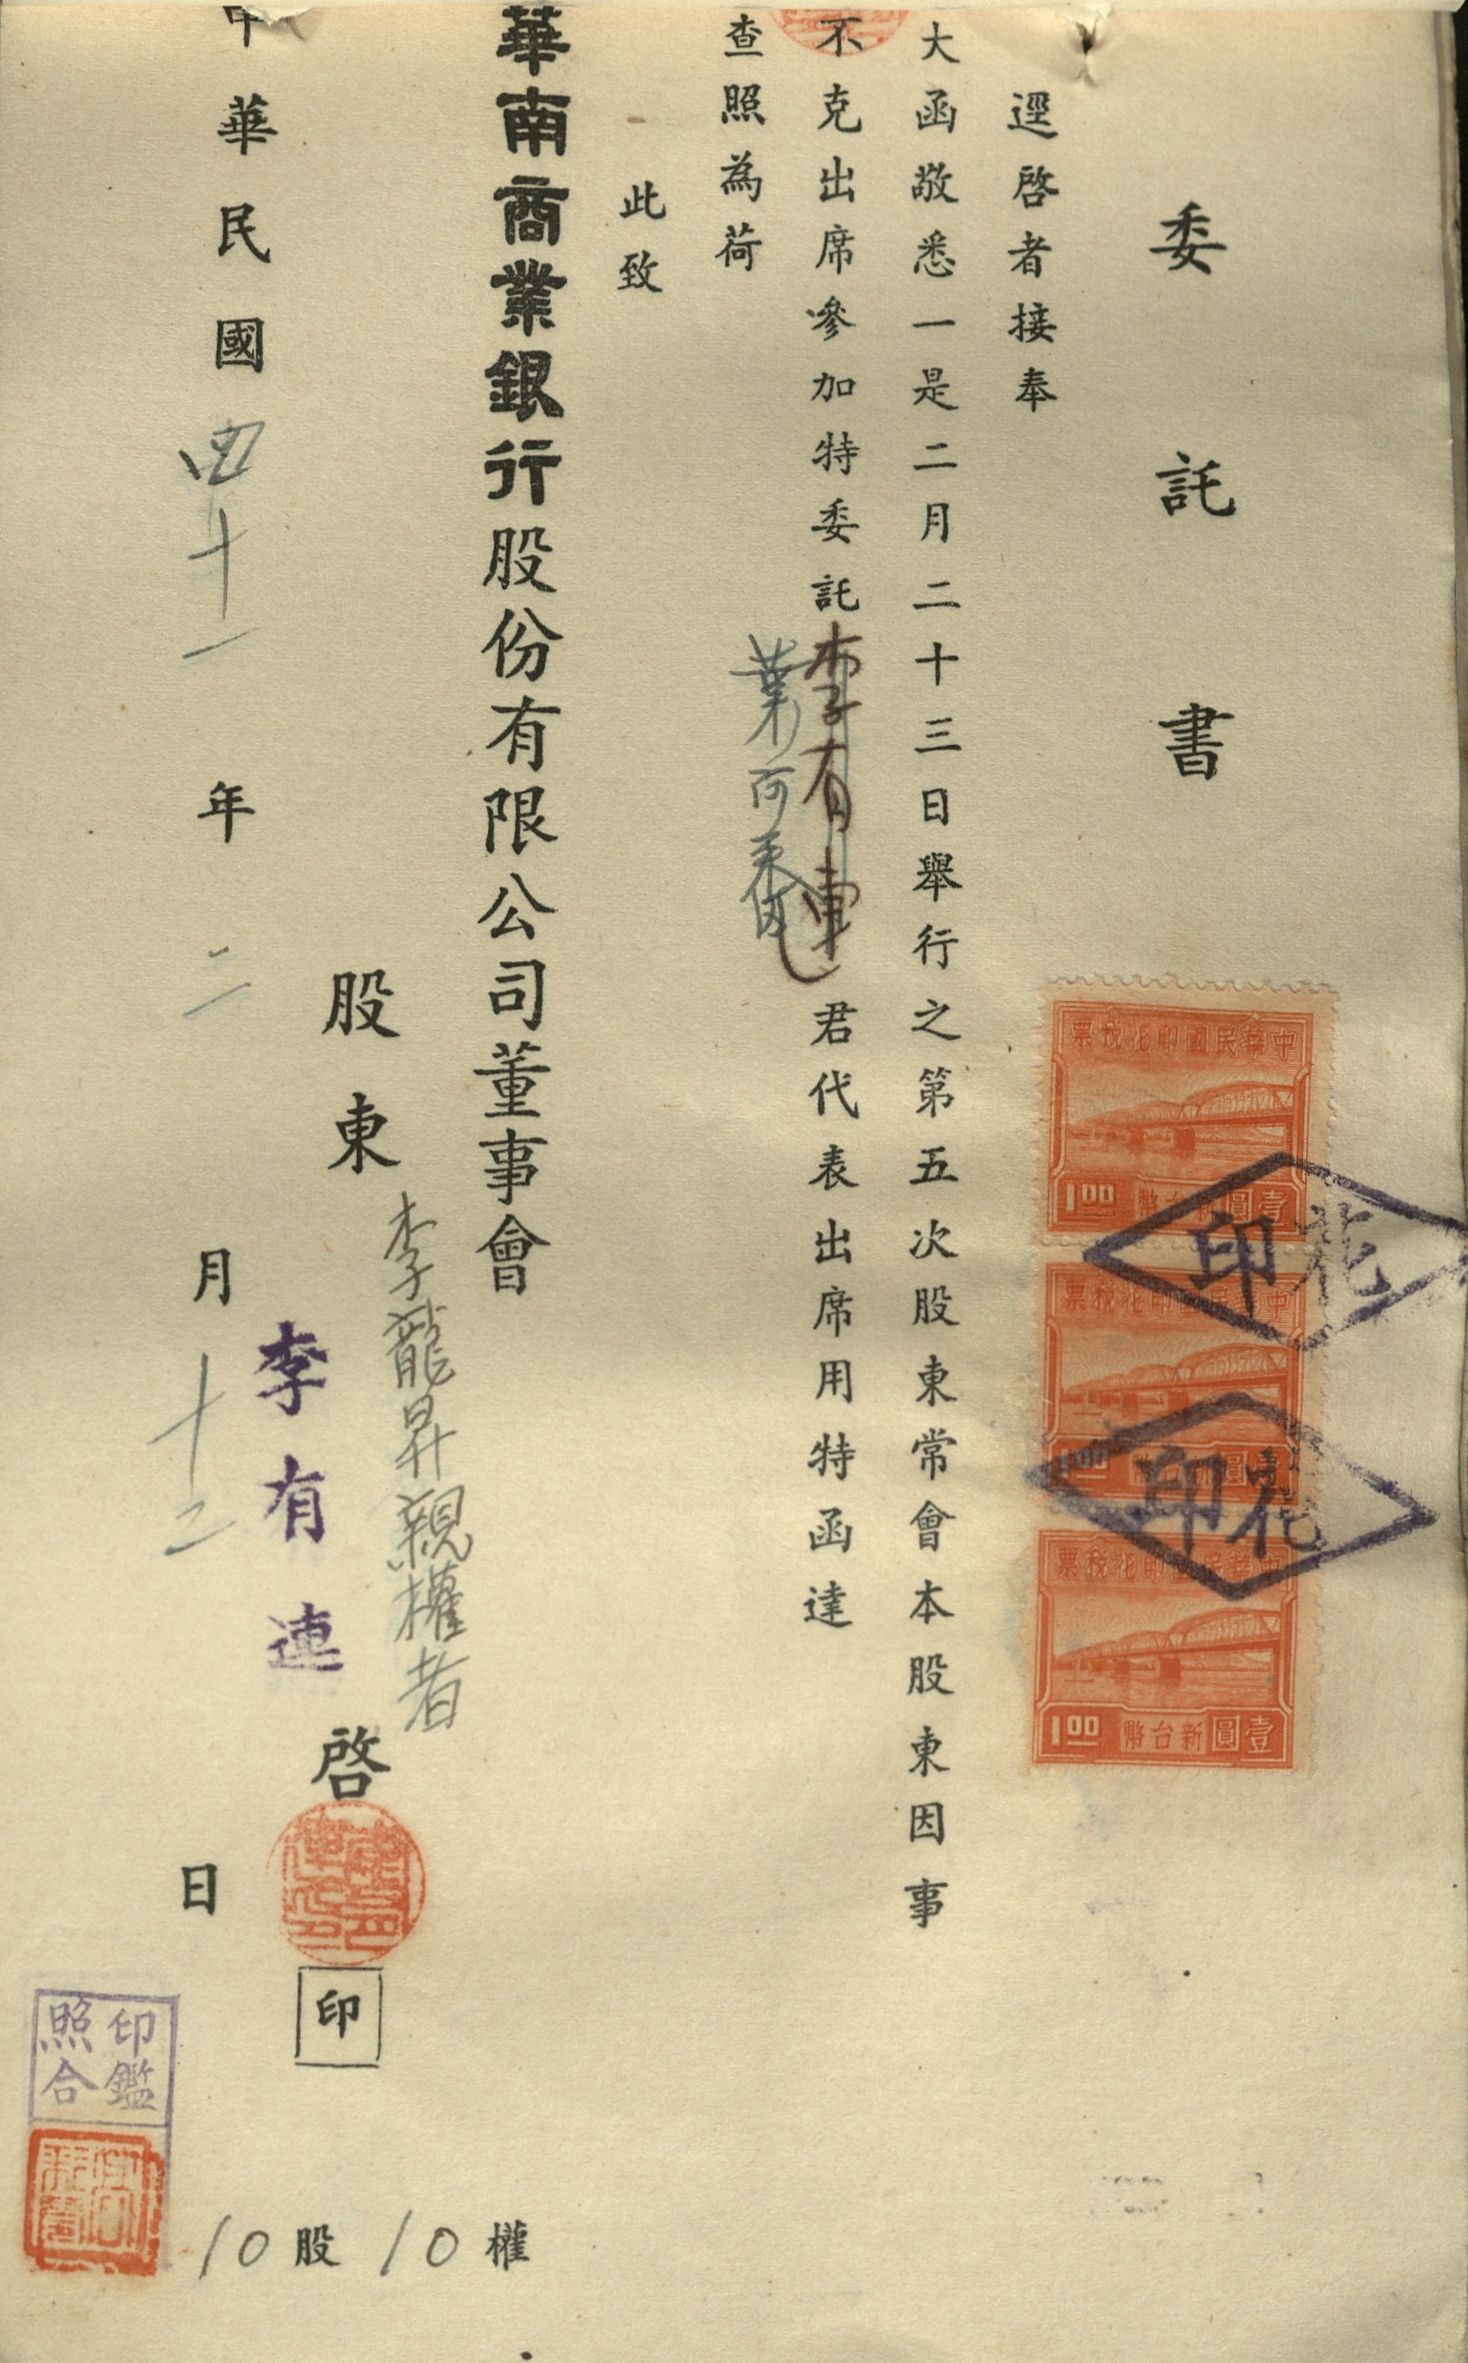 委託書
逕啓者接奉
大函敬悉一是二月二十三日舉行之第五次股東常會本股東因事
不克出席參加特委託李有連君代表出席用特函達
葉阿來
查照為荷
此致
華南商業銀行股份有限公司董事會
李龍昇親權者
股東 李有連 啓 印
中華民國四十一年二月十二日
10股10權
印鑑
照合
中華民國印花稅票
1.00 壹圓新台幣
中華民國印花稅票
1.00 壹圓新台幣
中華民國印花稅票
1.00 壹圓新台幣
印花
印花